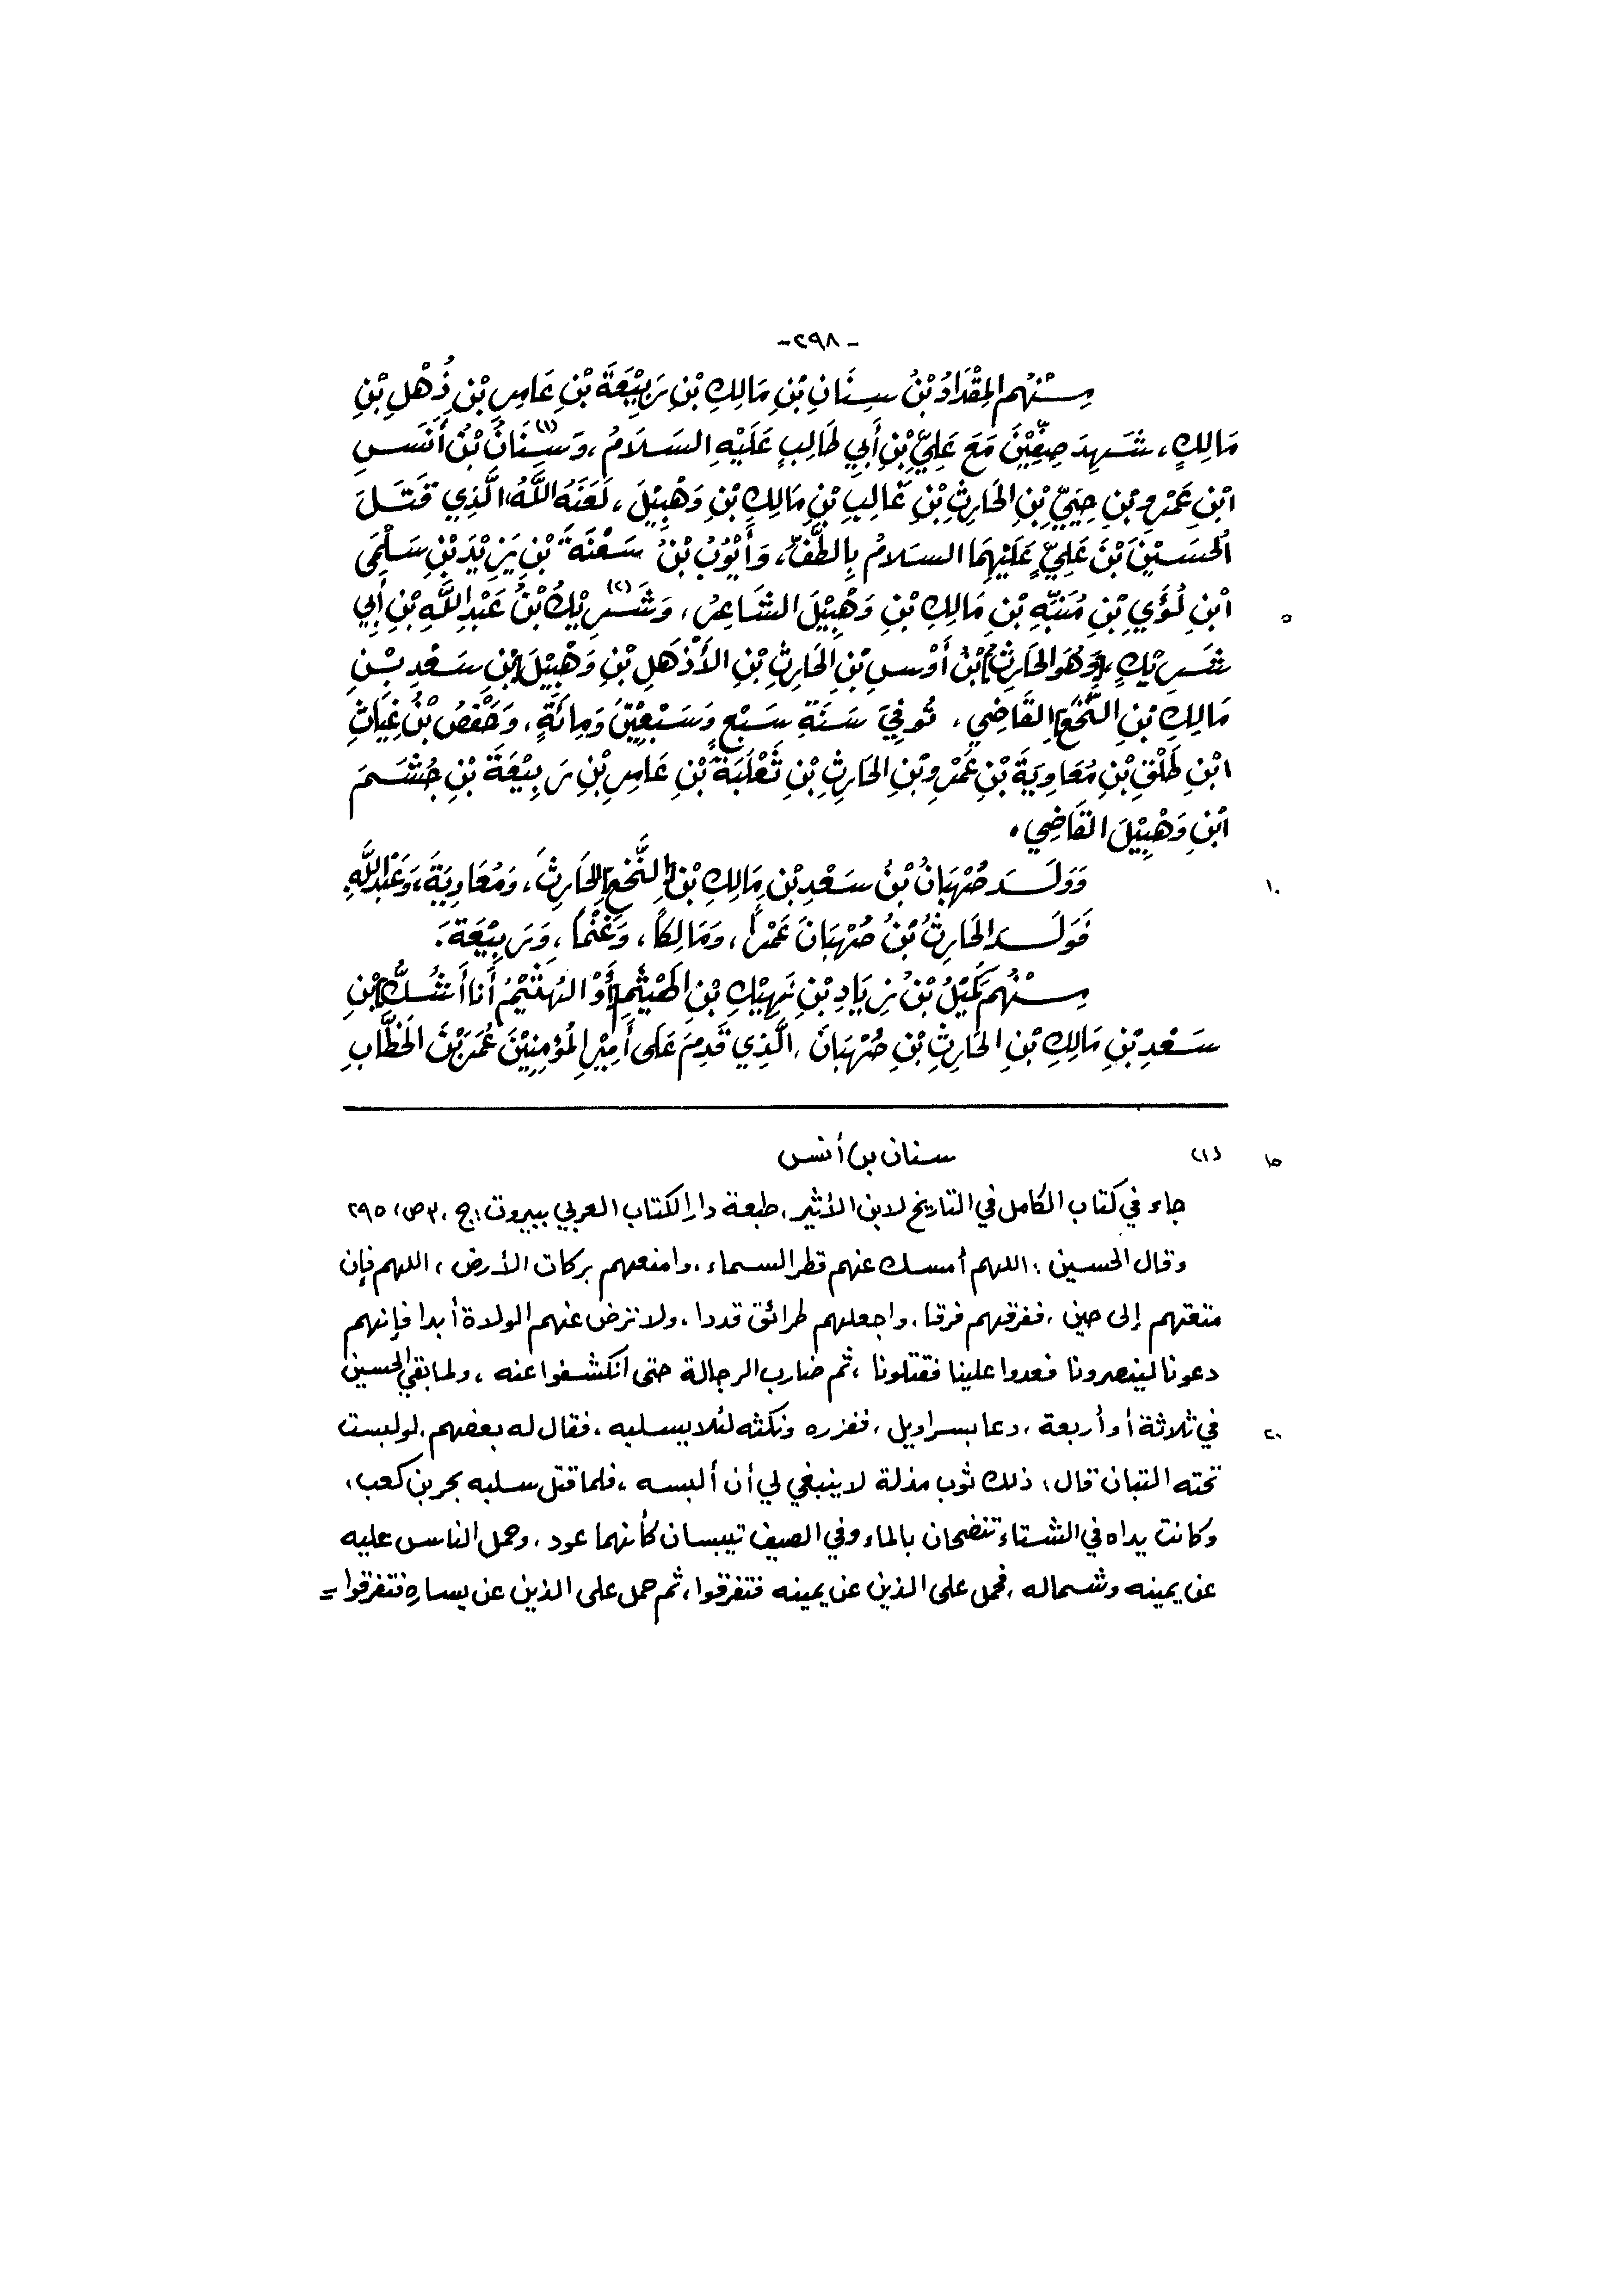 - ٢٩٨ -
مِنْهُم المِقْدَادُ بْنُ سِنَانِ بْنِ مَالِكِ بْنِ رَبِيْعَةَ بْنِ عَامِرِ بْنِ ذُهْلِ بْنِ
مَالِكٍ، شَهِدَ صِفِّيْنَ مَعَ عَلِيِّ بْنِ أَبِي طَالِبٍ عَلَيْهِ السَلَامُ، وَسِنَانُ(١) بْنُ أَنَسِ
ابْنِ عَمْرِو بْنِ حِيَيِّ بْنِ الحَارِثِ بْنِ غَالِبِ بْنِ مَالِكِ بْنِ وَهْبِيْلَ، لَعَنَهُ اللَّهُ، الَّذِي قَتَلَ
الحُسَيْنَ بْنَ عَلِيٍّ عَلَيْهِمَا السَلامُ بِالطَّفِّ، وَأَيُّوبُ بْنُ سَعْنَةَ بْنِ يَزِيْدَ بْنِ سَلْمَى
ابْنِ لُؤَيِ بْنِ مُنَبِّهِ بْنِ مَالِكِ بْنِ وَهْبِيْلَ الشَاعِرُ، وَشَرِيْكُ(٢) بْنُ عَبْدِ اللَّهِ بْنِ أَبِي
٥
شَرِيْكٍ، [وَهُوَ الحَارِثُ] بْنُ أَوْسِ بْنِ الحَارِثِ بْنِ الأَذْهَلِ بْنِ وَهْبِيْلَ [بْنِ سَعْدِ بْنِ
مَالِكِ بْنِ النَّخَعِ] القَاضِي، تُوفِيَ سَنَةَ سَبْعٍ وَسَبْعِيْنَ وَمِائَةٍ، وَحَفْصُ بْنُ غِيَاثِ
ابْنِ طَلْقِ بْنِ مُعَاوِيَةَ بْنِ عَمْرِو بْنِ الحَارِثِ بْنِ ثَعْلَبَةَ بْنِ عَامِرِ بْنِ رَبِيْعَةَ بْنِ جُشَمَ
ابْنِ وَهْبِيْلَ القَاضِي.
وَوَلَدَ صُهْبَانُ بْنُ سَعْدِ بْنِ مَالِكِ بْنِ [النَّخَعِ] الحَارِثَ، وَمُعَاوِيَةَ، وَعَبْدَ اللَّهِ.
١٠
فَوَلَدَ الحَارِثُ بْنُ صُهْبَانَ عَمْرًا، وَمَالِكاً، وَغَنْمَاً، وَرَبِيْعَةَ.
مِنْهُم كُمَيْلُ بْنُ زِيَادِ بْنِ نَهِيْكِ بْنِ الهَيْثَمِ [أَوْ النُهَيْثِمُ أَنا أَشُكُّ] بْنِ
سَعْدِ بْنِ مَالِكِ بْنِ الحَارِثِ بْنِ صُهْبَانَ، الَّذِي قَدِمَ عَلَى أَمِيْرِ المُؤمِنِيْنَ عُمَرَ بْنَ الخَطَّابِ
(١) سنان بن أنس
١٥
جاء في كتاب الكامل في التاريخ لابن الأثير، طبعة دار الكتاب العربي ببيروت: ج، ٣ ص، ٢٩٥
وقال الحسين: اللهم أمسك عنهم قطر السماء، وامنعهم بركات الأرض، اللهم فإن
متعتهم إلى حين، ففرقهم فرقا، واجعلهم طرائق قددا، ولا ترض عنهم الولاة أبدا فإنهم
دعونا لينصرونا فعدوا علينا فقتلونا، ثم ضارب الرجالة حتى انكشفوا عنه، ولما بقي الحسين
في ثلاثة أو أربعة، دعا بسراويل، ففزره ونكثه لئلا يسلبه، فقال له بعضهم، لو لبست
٢٠
تحته التبان قال: ذلك ثوب مذلة لا ينبغي لي أن ألبسه، فلما قتل سلبه بحر بن كعب،
وكانت يداه في الشتاء تنضحان بالماء وفي الصيف تيبسان كأنهما عود، وحمل الناس عليه
عن يمينه وشماله، فحمل على الذين عن يمينه فتفرقوا، ثم حمل على الذين عن يساره فتفرقوا =